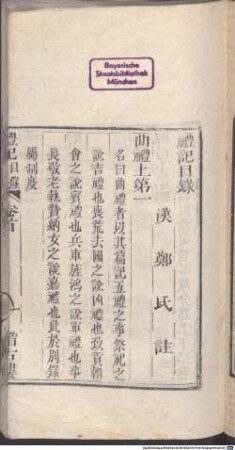 Bayerische
Staatsbibliothek
München
禮記目錄
漢鄭氏註
曲禮上第一
名曰曲禮者以其篇記五禮之事祭祀之
說吉禮也喪荒去國之說凶禮也致貢朝
會之說賓禮也兵車旌鴻之說軍禮也事
長敬老執贄納女之說嘉禮也此於別錄
屬制度
禮記目錄